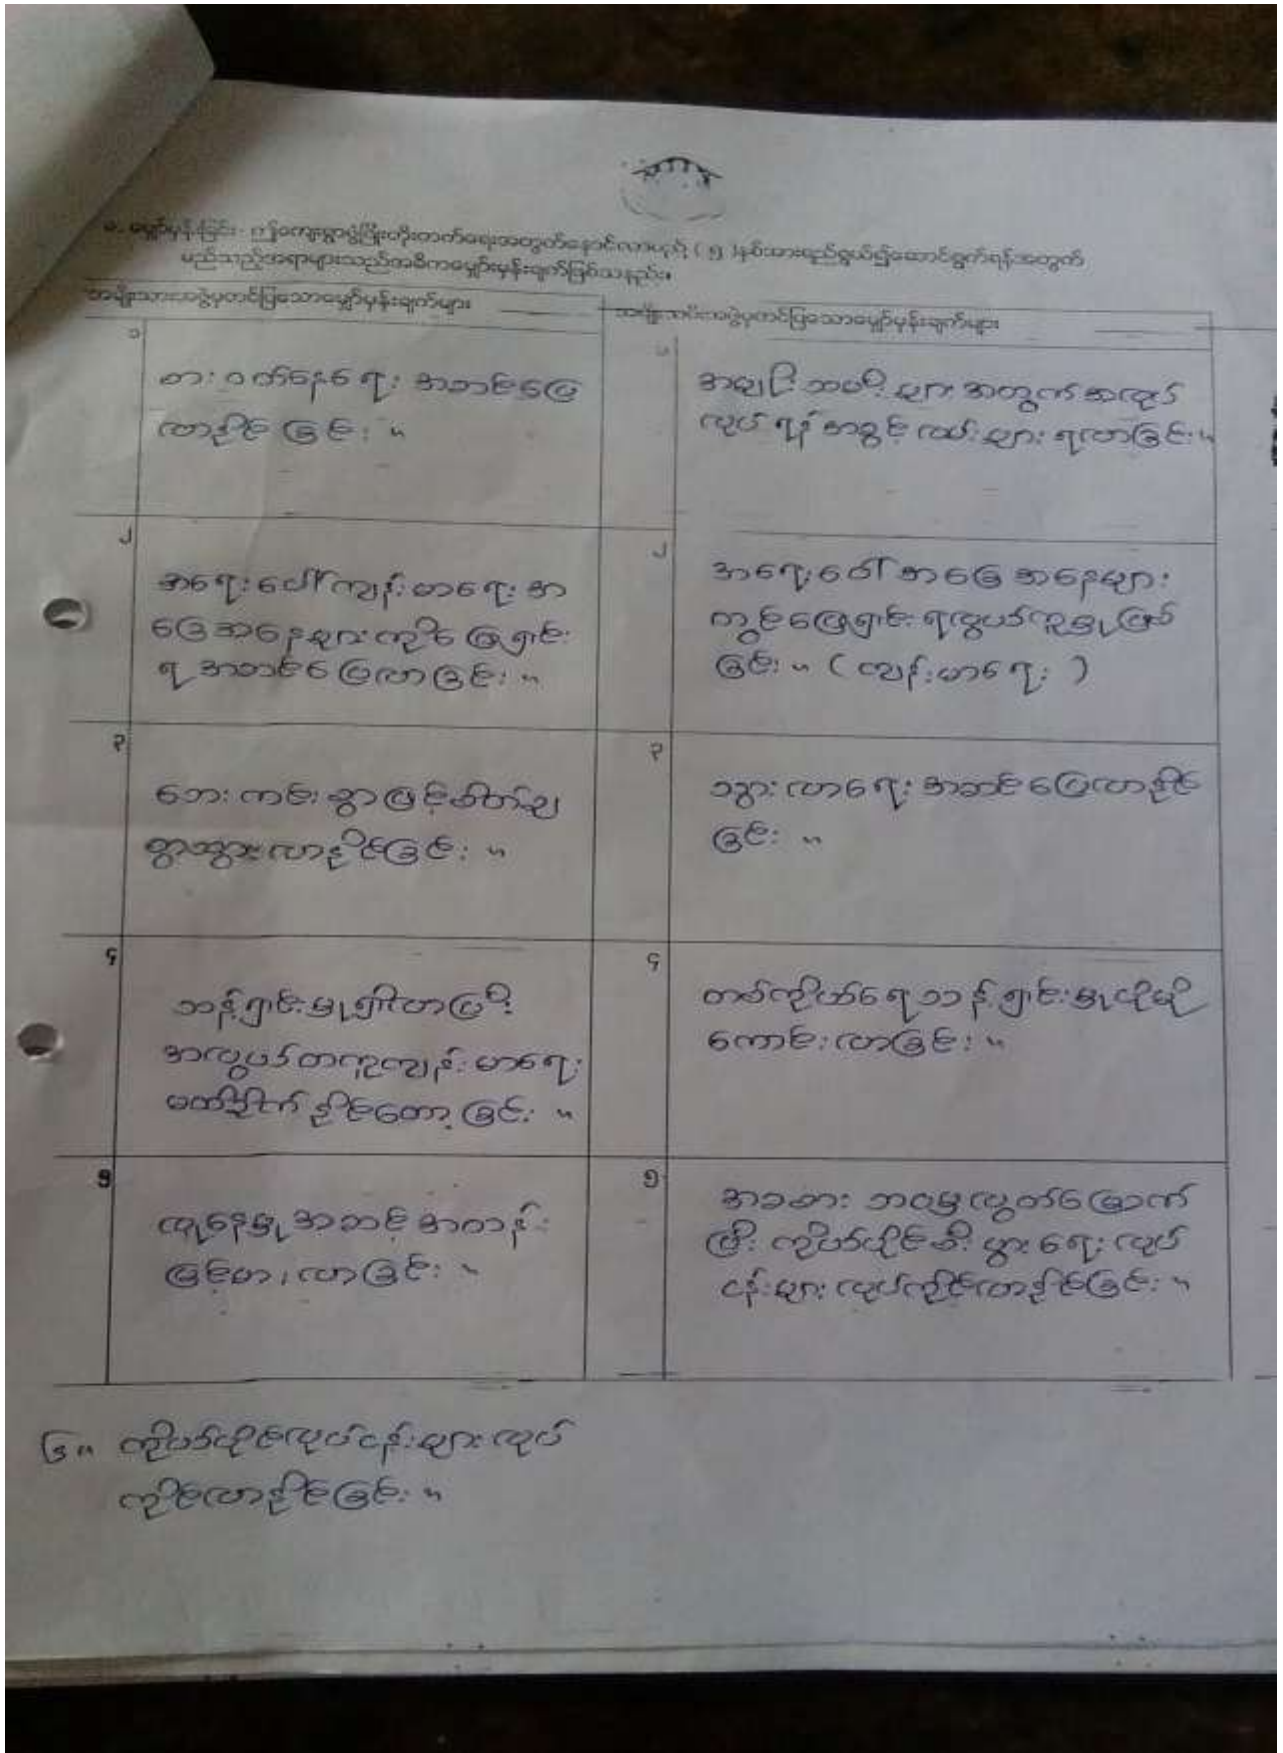 ၁. မျှော်မှန်းခြင်း - ဤကျေးရွာဖွံ့ဖြိုးတိုးတက်ရေးအတွက်နောင်လာမည့် ( ၅ )နှစ်အားရည်ရွယ်၍ဆောင်ရွက်ရန်အတွက်
မည်သည့်အရာများသည်အဓိကမျှော်မှန်းချက်ဖြစ်သနည်း။
အမျိုးသားအဖွဲ့မှတင်ပြသောမျှော်မှန်းချက်များ
အမျိုးသမီးအဖွဲ့မှတင်ပြသောမျှော်မှန်းချက်များ
၁
စား ဝတ်နေရေး အဆင်ပြေ
လာနိုင်ခြင်း။
၁
အမျိုးသမီးများအတွက်အလုပ်
လုပ်ရန်အခွင့်လမ်းများရလာခြင်း။
၂
အရေးပေါ်ကျန်းမာရေးအ
ခြေအနေများကိုဖြေရှင်း
ရအဆင်ပြေလာခြင်း။
၂
အရေးပေါ်အခြေအနေများ
တွင်ဖြေရှင်းရလွယ်ကူမှုဖြစ်
ခြင်း။ (ကျန်းမာရေး)
၃
ဘေးကင်းစွာဖြင့်စိတ်ချ
စွာသွားလာနိုင်ခြင်း။
၃
သွားလာရေးအဆင်ပြေလာနိုင်
ခြင်း။
၄
သန့်ရှင်းမှုရှိလာပြီး
အလွယ်တကူကျန်းမာရေး
မထိခိုက်နိုင်တော့ခြင်း။
၄
တစ်ကိုယ်ရေသန့်ရှင်းမှုပိုမို
ကောင်းလာခြင်း။
၅
လူနေမှုအဆင့်အတန်း
မြင့်မားလာခြင်း။
၅
အခစားဘဝမှလွတ်မြောက်
ပြီးကိုယ်ပိုင်စီးပွားရေးလုပ်
ငန်းများလုပ်ကိုင်လာနိုင်ခြင်း။
၆။ ကိုယ်ပိုင်လုပ်ငန်းများလုပ်
ကိုင်လာနိုင်ခြင်း။